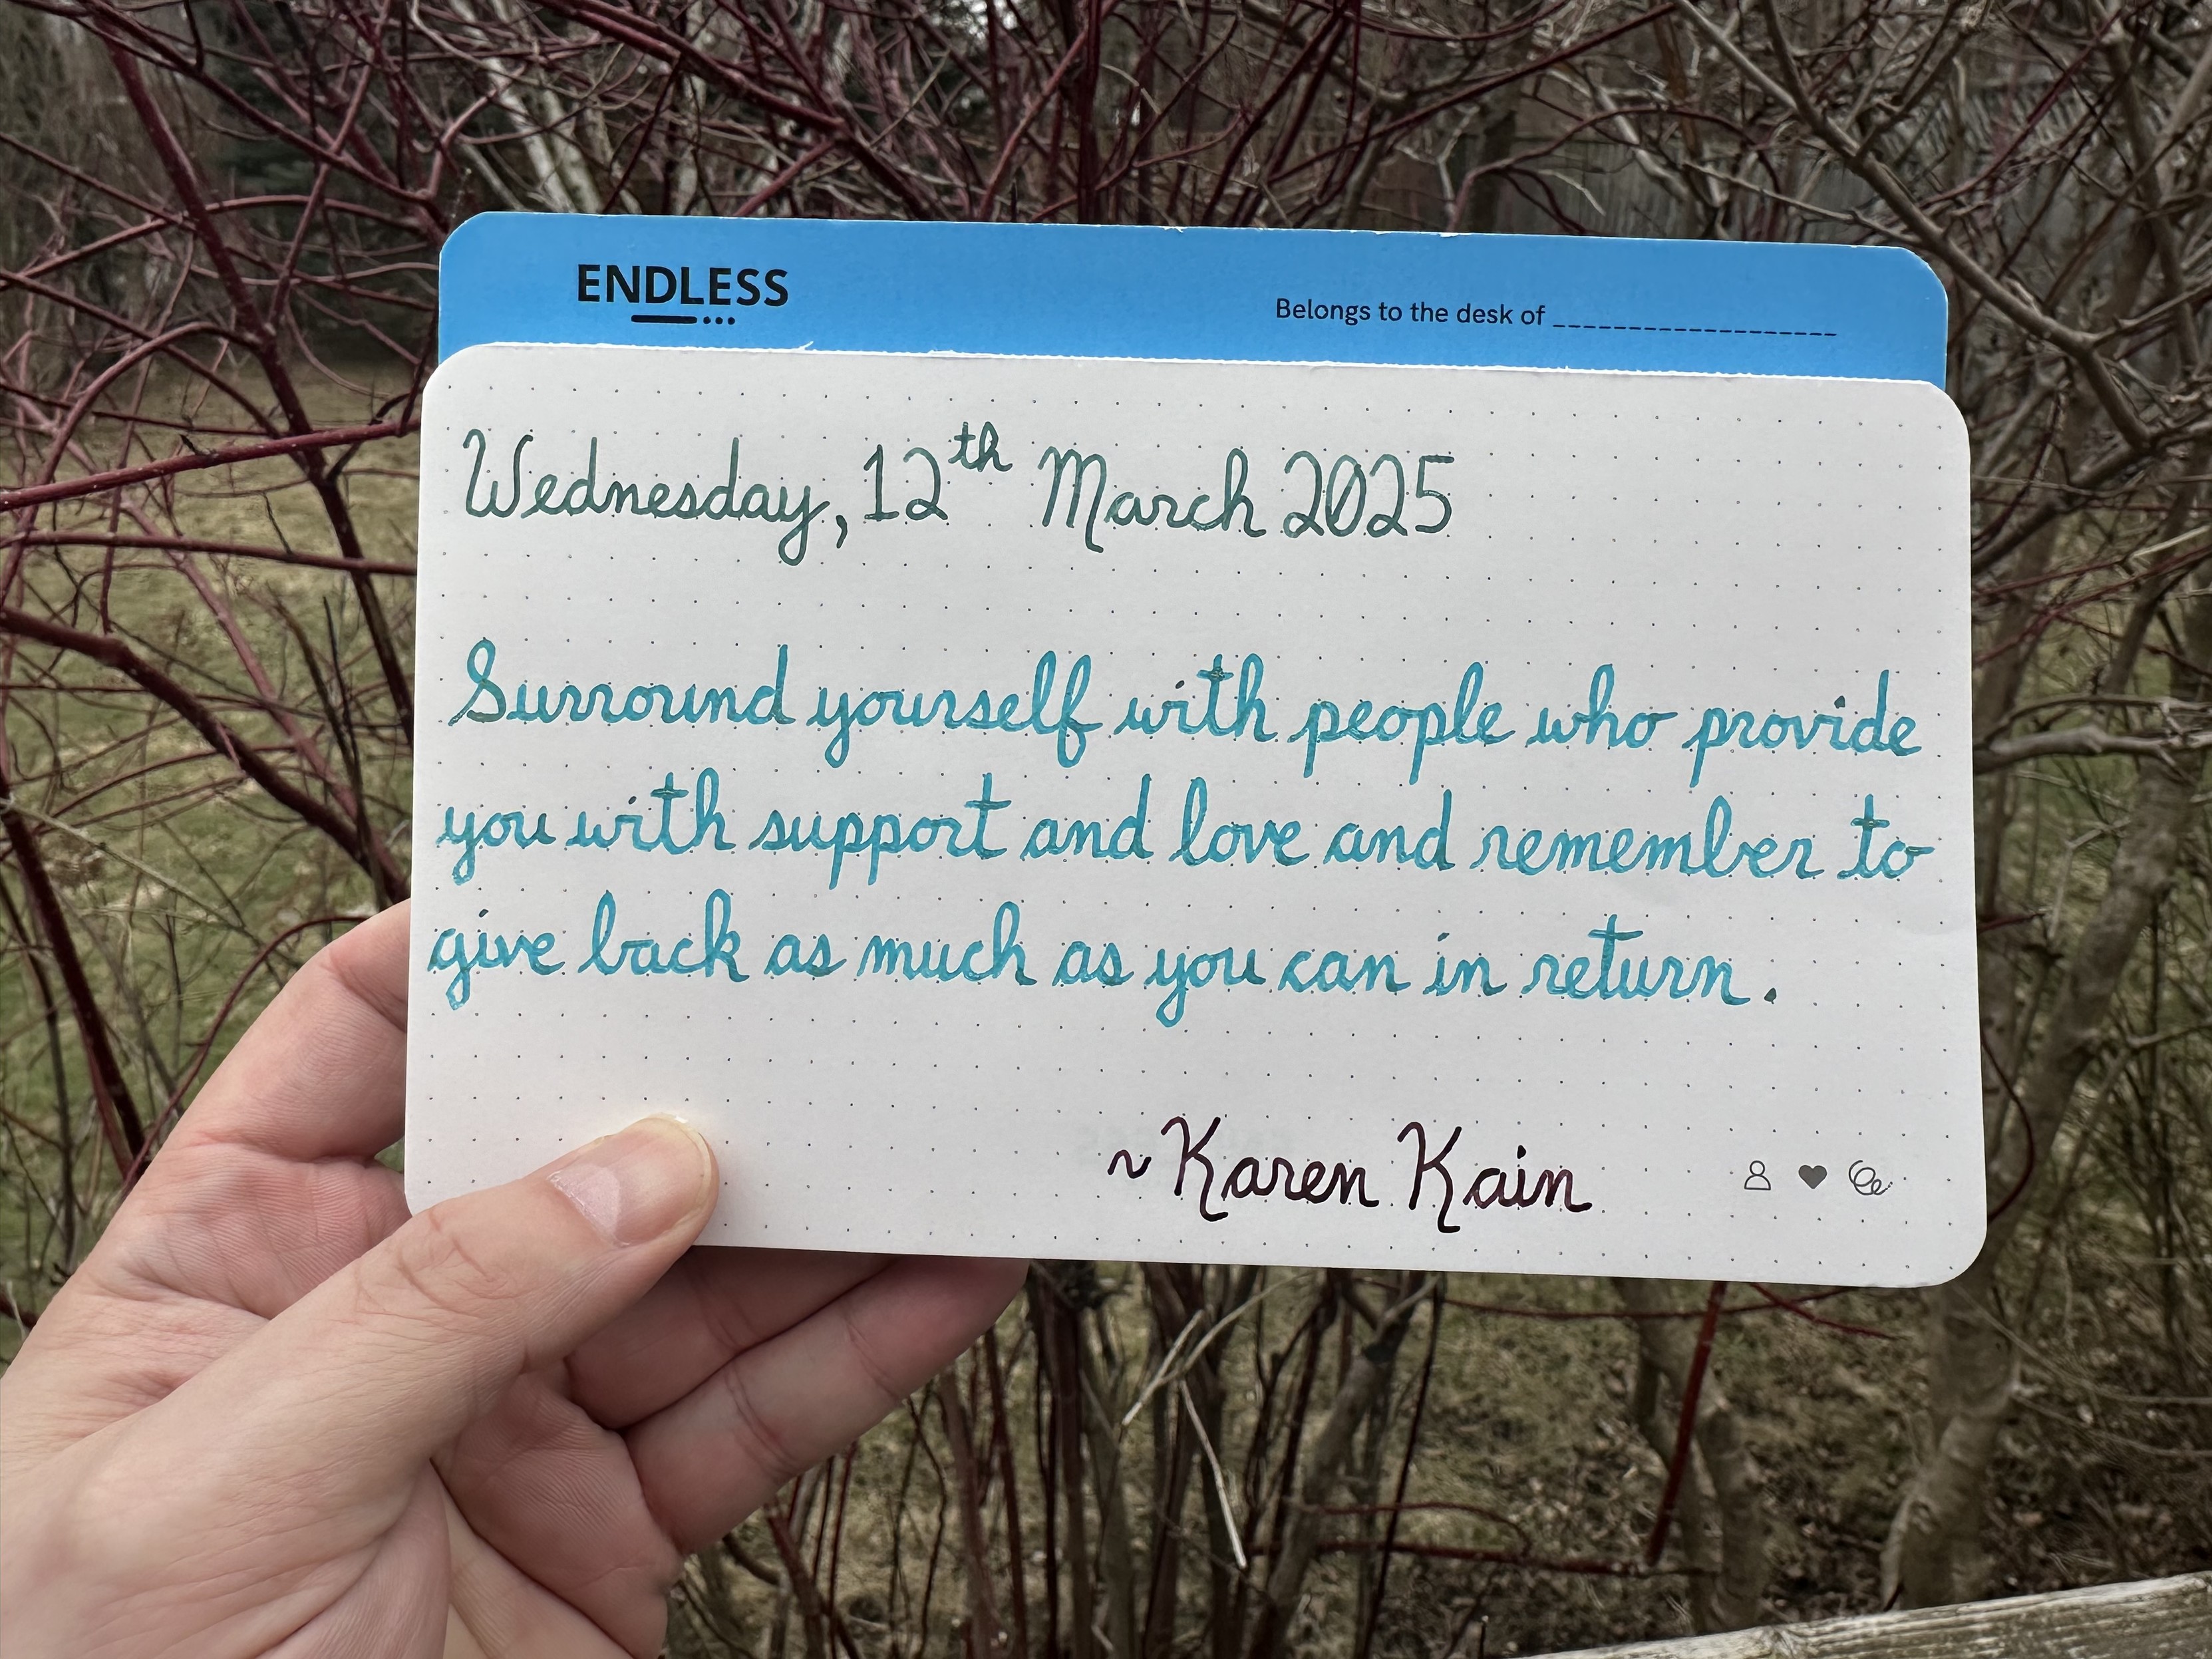 ENDLESS
Belongs to the desk of ___________________
Wednesday, 12th March 2025
Surround yourself with people who provide
you with support and love and remember to
give back as much as you can in return.
~Karen Kain